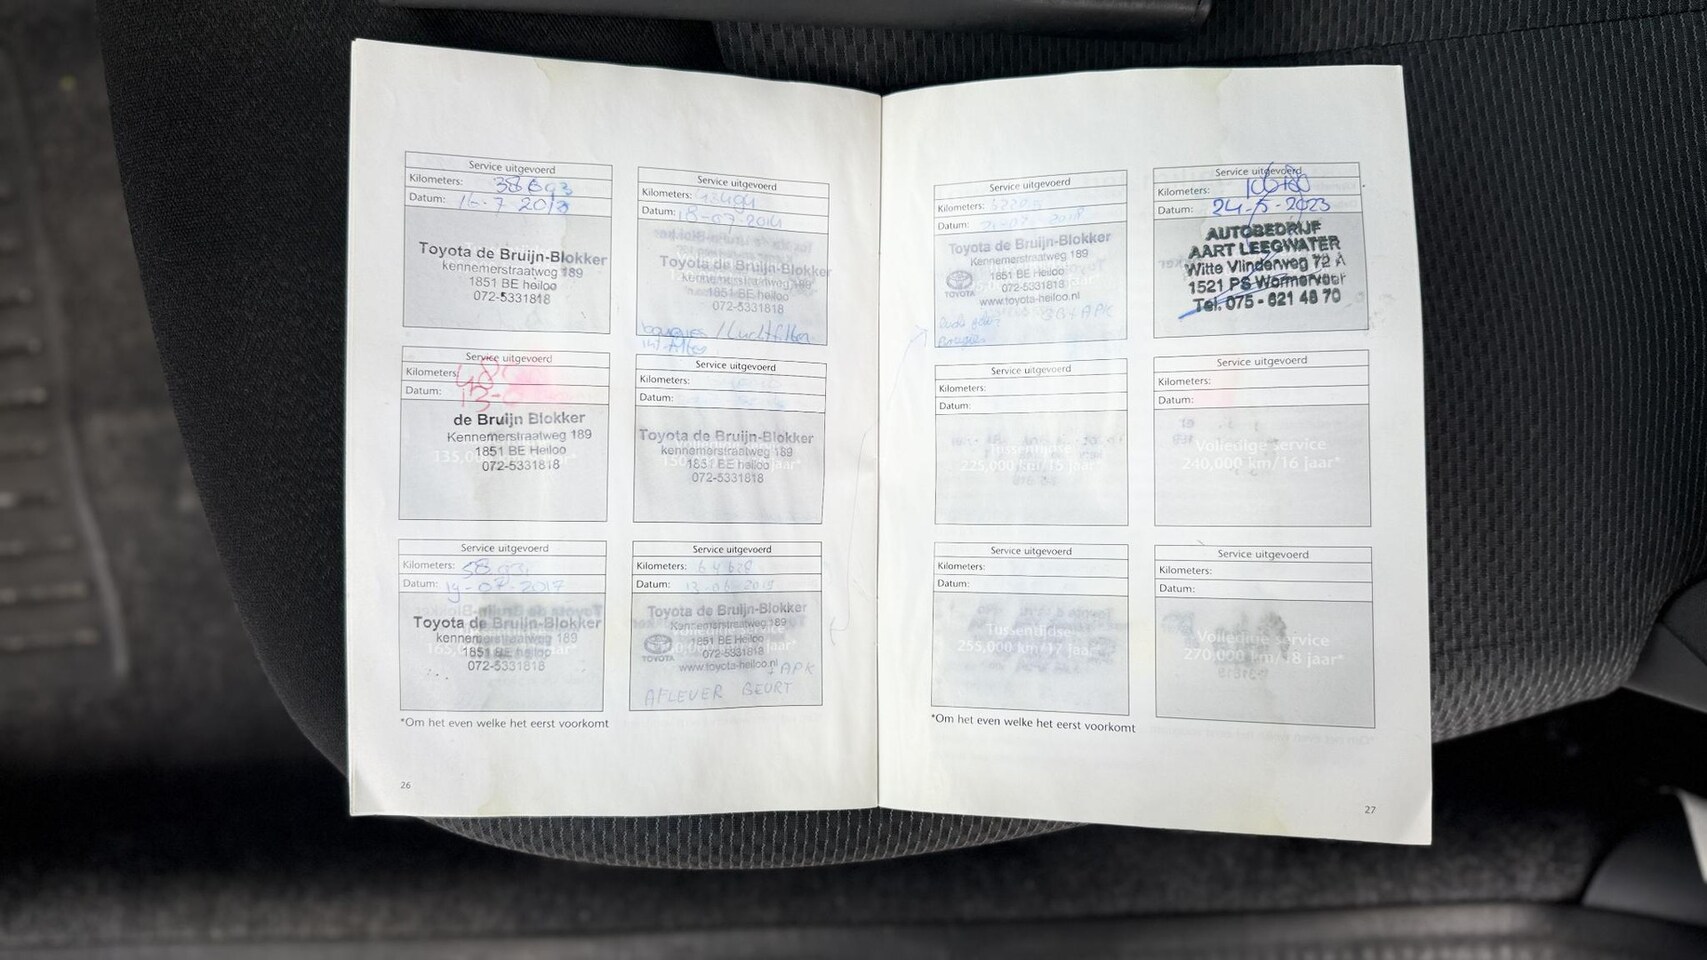 Service uitgevoerd
Kilometers: 38693
Datum: 16-7-2013
Toyota de Bruijn-Blokker
kennemerstraatweg 189
1851 BE heiloo
072-5331818
Service uitgevoerd
Kilometers:
Datum: 18-07-2014
Toyota de Bruijn-Blokker
kennemerstraatweg 189
1851 BE heiloo
072-5331818
bougies / Luchtfilter
Service uitgevoerd
Kilometers:
Datum: 13-
de Bruijn Blokker
Kennemerstraatweg 189
1851 BE Heiloo
072-5331818
Service uitgevoerd
Kilometers:
Datum:
Toyota de Bruijn-Blokker
kennemerstraatweg 189
1851 BE heiloo
072-5331818
Service uitgevoerd
Kilometers:
Datum: 19-07-2017
Toyota de Bruijn-Blokker
kennemerstraatweg 189
1851 BE heiloo
072-5331818
Service uitgevoerd
Kilometers: 64628
Datum:
Toyota de Bruijn-Blokker
Kennemerstraatweg 189
1851 BE Heiloo
072-5331818
TOYOTA
www.toyota-heiloo.nl
+ APK
AFLEVER BEURT
*Om het even welke het eerst voorkomt
26
Service uitgevoerd
Kilometers:
Datum:
Toyota de Bruijn-Blokker
Kennemerstraatweg 189
1851 BE Heiloo
072-5331818
TOYOTA
www.toyota-heiloo.nl
Service uitgevoerd
Kilometers:
Datum: 24-5-2023
AUTOBEDRIJF
AART LEEGWATER
Witte Vlinderweg 72 A
1521 PS Wormerveer
Tel. 075 - 621 48 70
Service uitgevoerd
Kilometers:
Datum:
Tussentijdse
225,000 km/15 jaar*
Service uitgevoerd
Kilometers:
Datum:
Volledige service
240,000 km/16 jaar*
Service uitgevoerd
Kilometers:
Datum:
Tussentijdse
255,000 km/17 jaar*
Service uitgevoerd
Kilometers:
Datum:
Volledige service
270,000 km/18 jaar*
*Om het even welke het eerst voorkomt
27